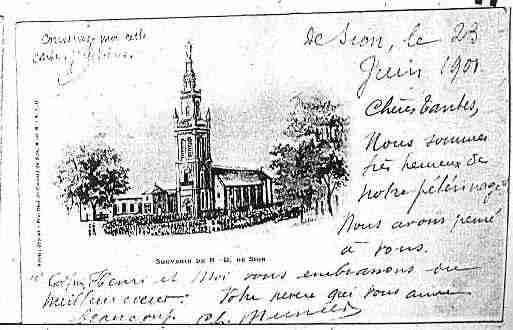 Conservez moi cette
carte
de Sion, le 23
Juin 1901
Chères Tantes,
Nous sommes
très heureux de
notre pélérinage
Nous avons pensé
à vous.
SOUVENIR DE N.-D. DE SION
Henri et Moi vous embrassons du
meilleur coeur. Votre neveu qui vous aime
beaucoup Ch.